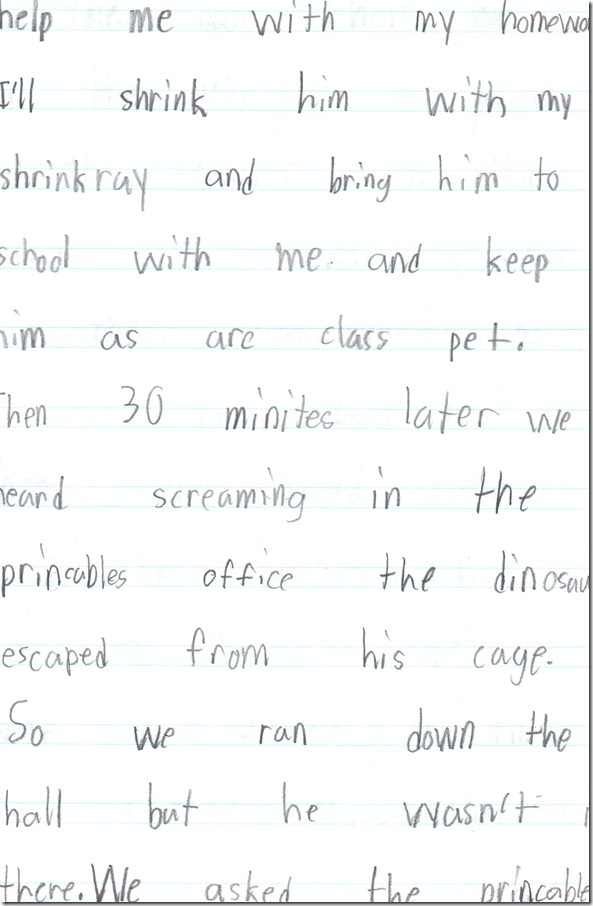 help me with my homewo
I'll shrink him with my
shrink ray and bring him to
school with me and keep
him as arc class pet.
Then 30 minites later we
heard screaming in the
princables office the dinosau
escaped from his cage.
So we ran down the
hall but he wasn't
there. We asked the princable